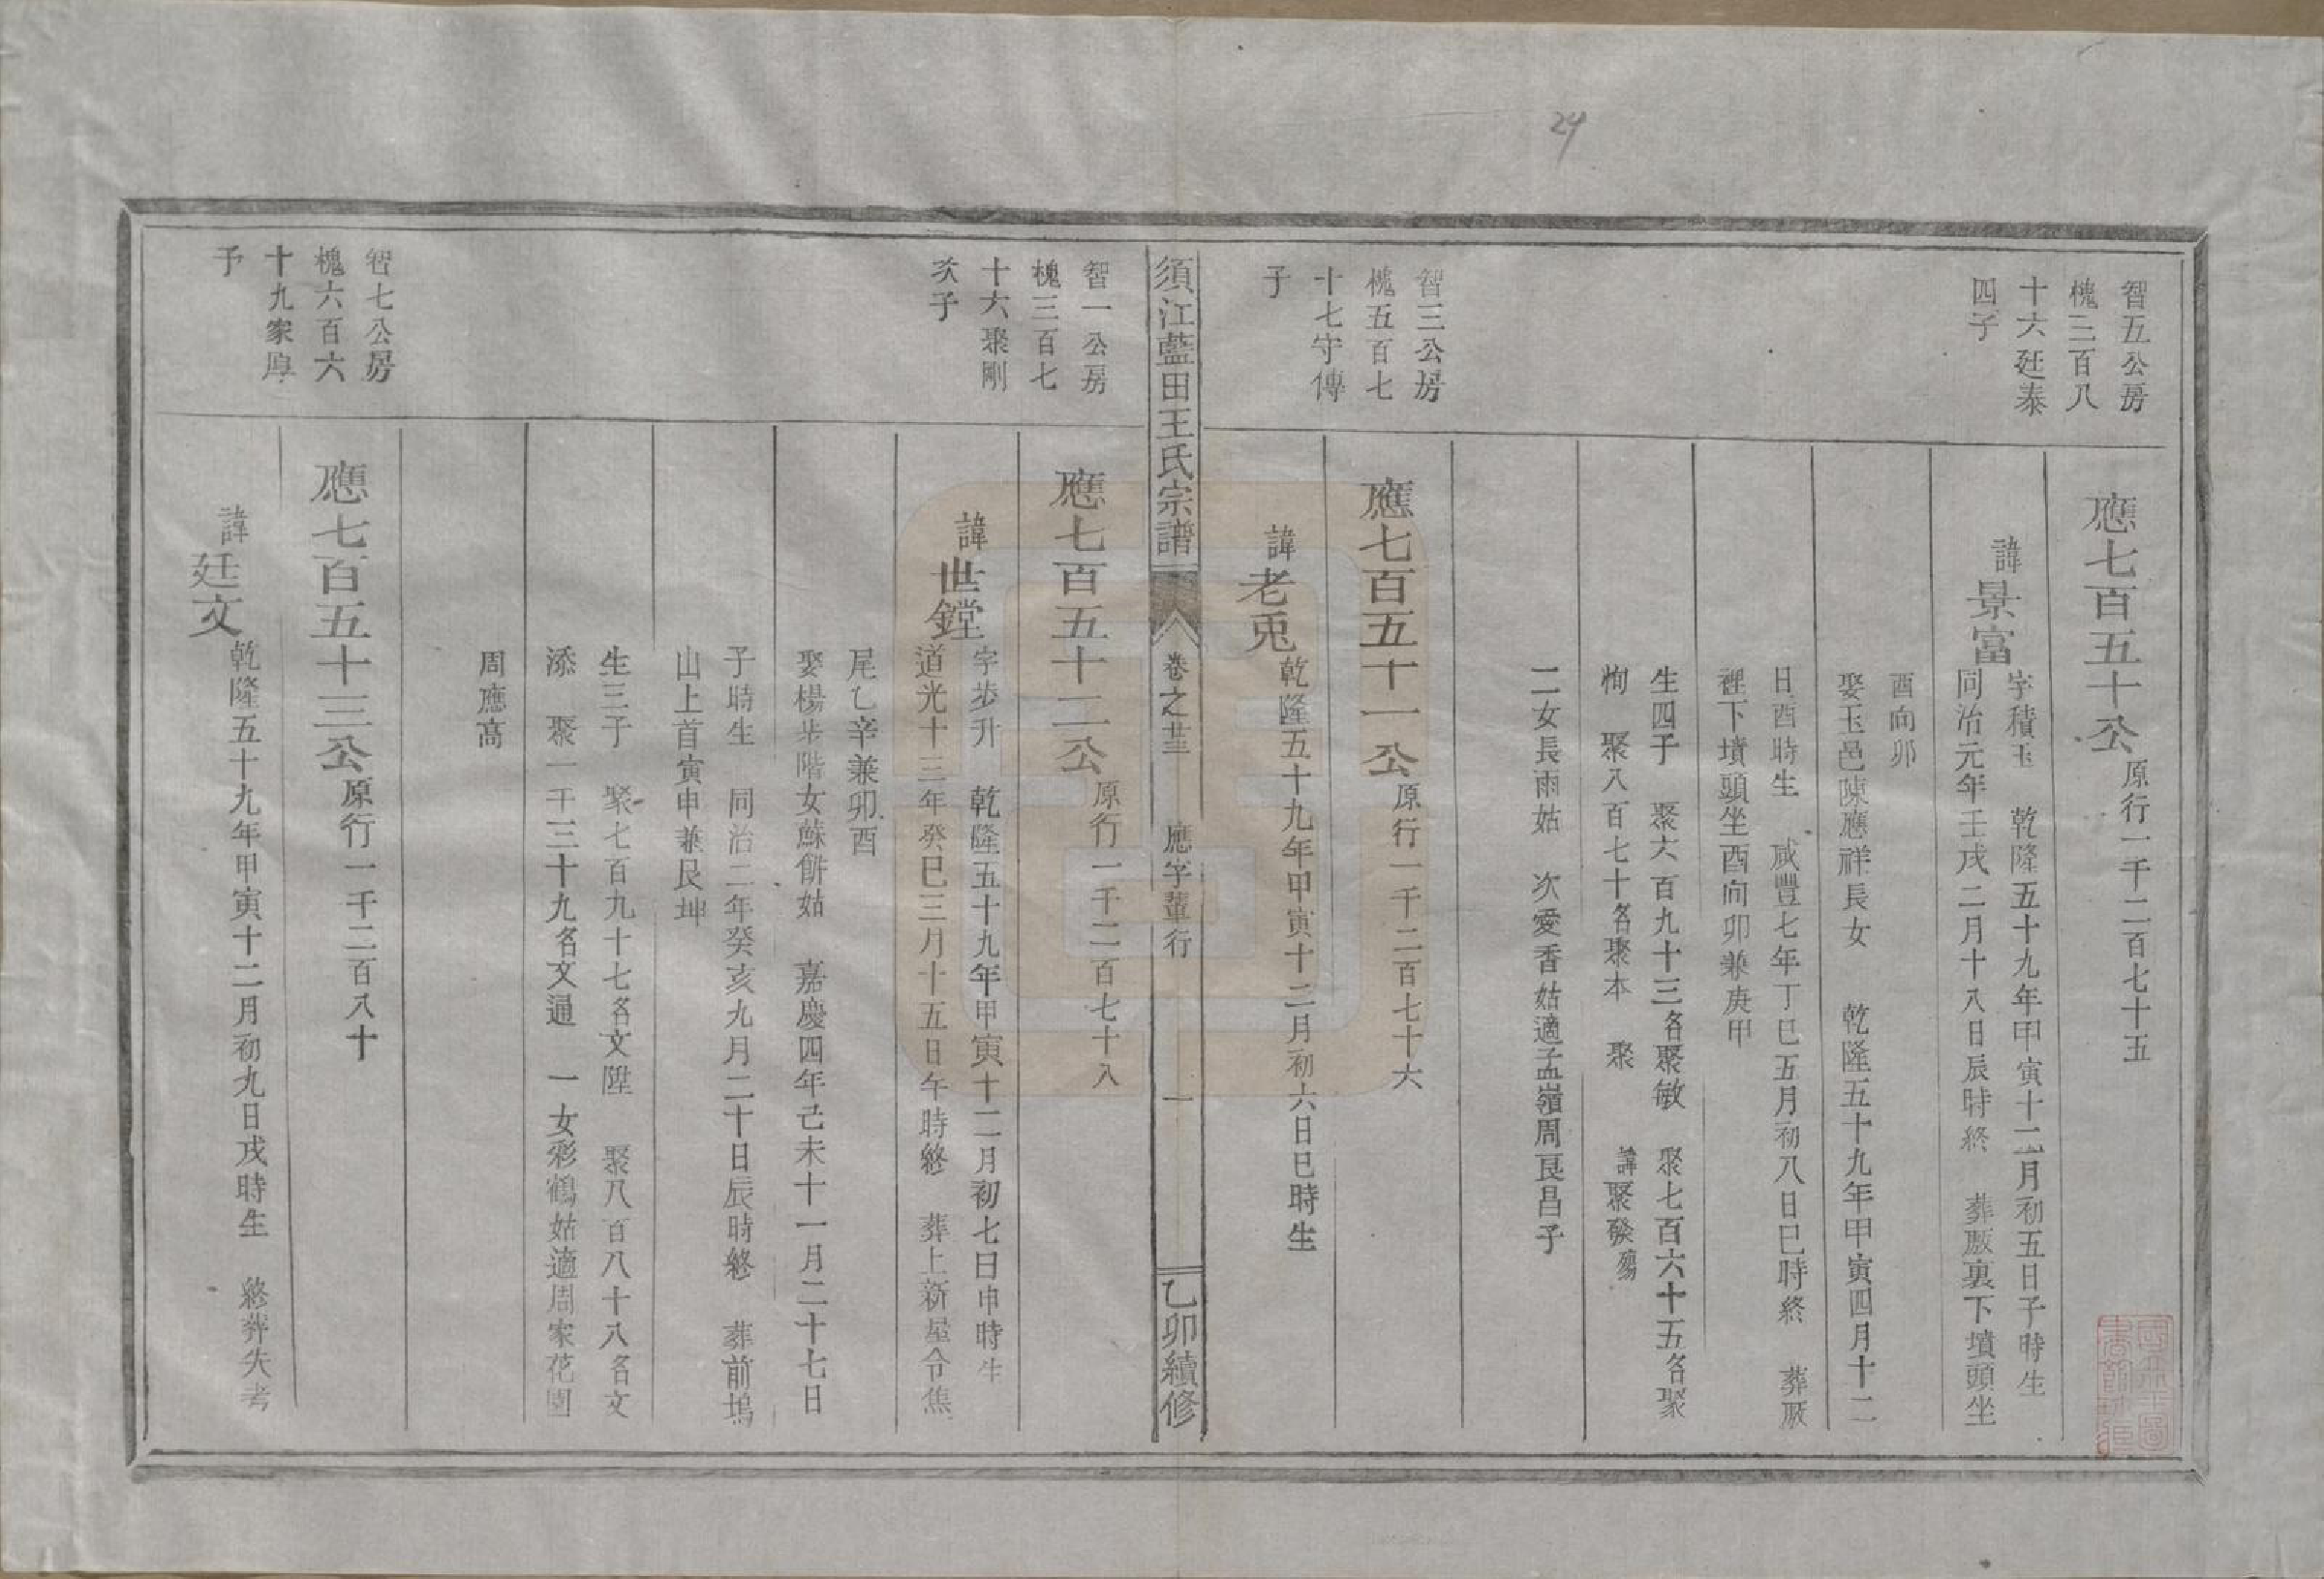 24
智五公房
槐三百八
十六廷泰
四子
應七百五十公原行一千二百七十五
諱景富字積玉 乾隆五十九年甲寅十二月初五日子時生
同治元年壬戌二月十八日辰時終 葬厫裏下墳頭坐
酉向卯
娶玉邑陳應祥長女 乾隆五十九年甲寅四月十二
日酉時生 咸豐七年丁巳五月初八日巳時終 葬厫
裡下墳頭坐酉向卯兼庚甲
生四子 聚六百九十三名聚敏 聚七百六十五名聚
恂 聚八百七十名聚本 聚 諱聚發殤
二女長雨姑 次愛香姑適孟嶺周良昌子
智三公房
槐五百七
十七守傳
子
應七百五十一公原行一千二百七十六
諱老兎乾隆五十九年甲寅十二月初六日巳時生
須江藍田王氏宗譜 卷之廿三 應字輩行 一 乙卯續修
智一公房
槐三百七
十六聚剛
次子
應七百五十二公原行一千二百七十八
諱世鏜字步升 乾隆五十九年甲寅十二月初七日申時生
道光十三年癸巳三月十五日午時終 葬上新屋令焦
尾乙辛兼卯酉
娶楊步階女蘇餅姑 嘉慶四年己未十一月二十七日
子時生 同治二年癸亥九月二十日辰時終 葬前塢
山上首寅申兼艮坤
生三子 聚七百九十七名文陞 聚八百八十八名文
添 聚一千三十九名文通 一女彩鶴姑適周家花園
周應高
智七公房
槐六百六
十九家厚
子
應七百五十三公原行一千二百八十
諱廷文乾隆五十九年甲寅十二月初九日戌時生 終葬失考